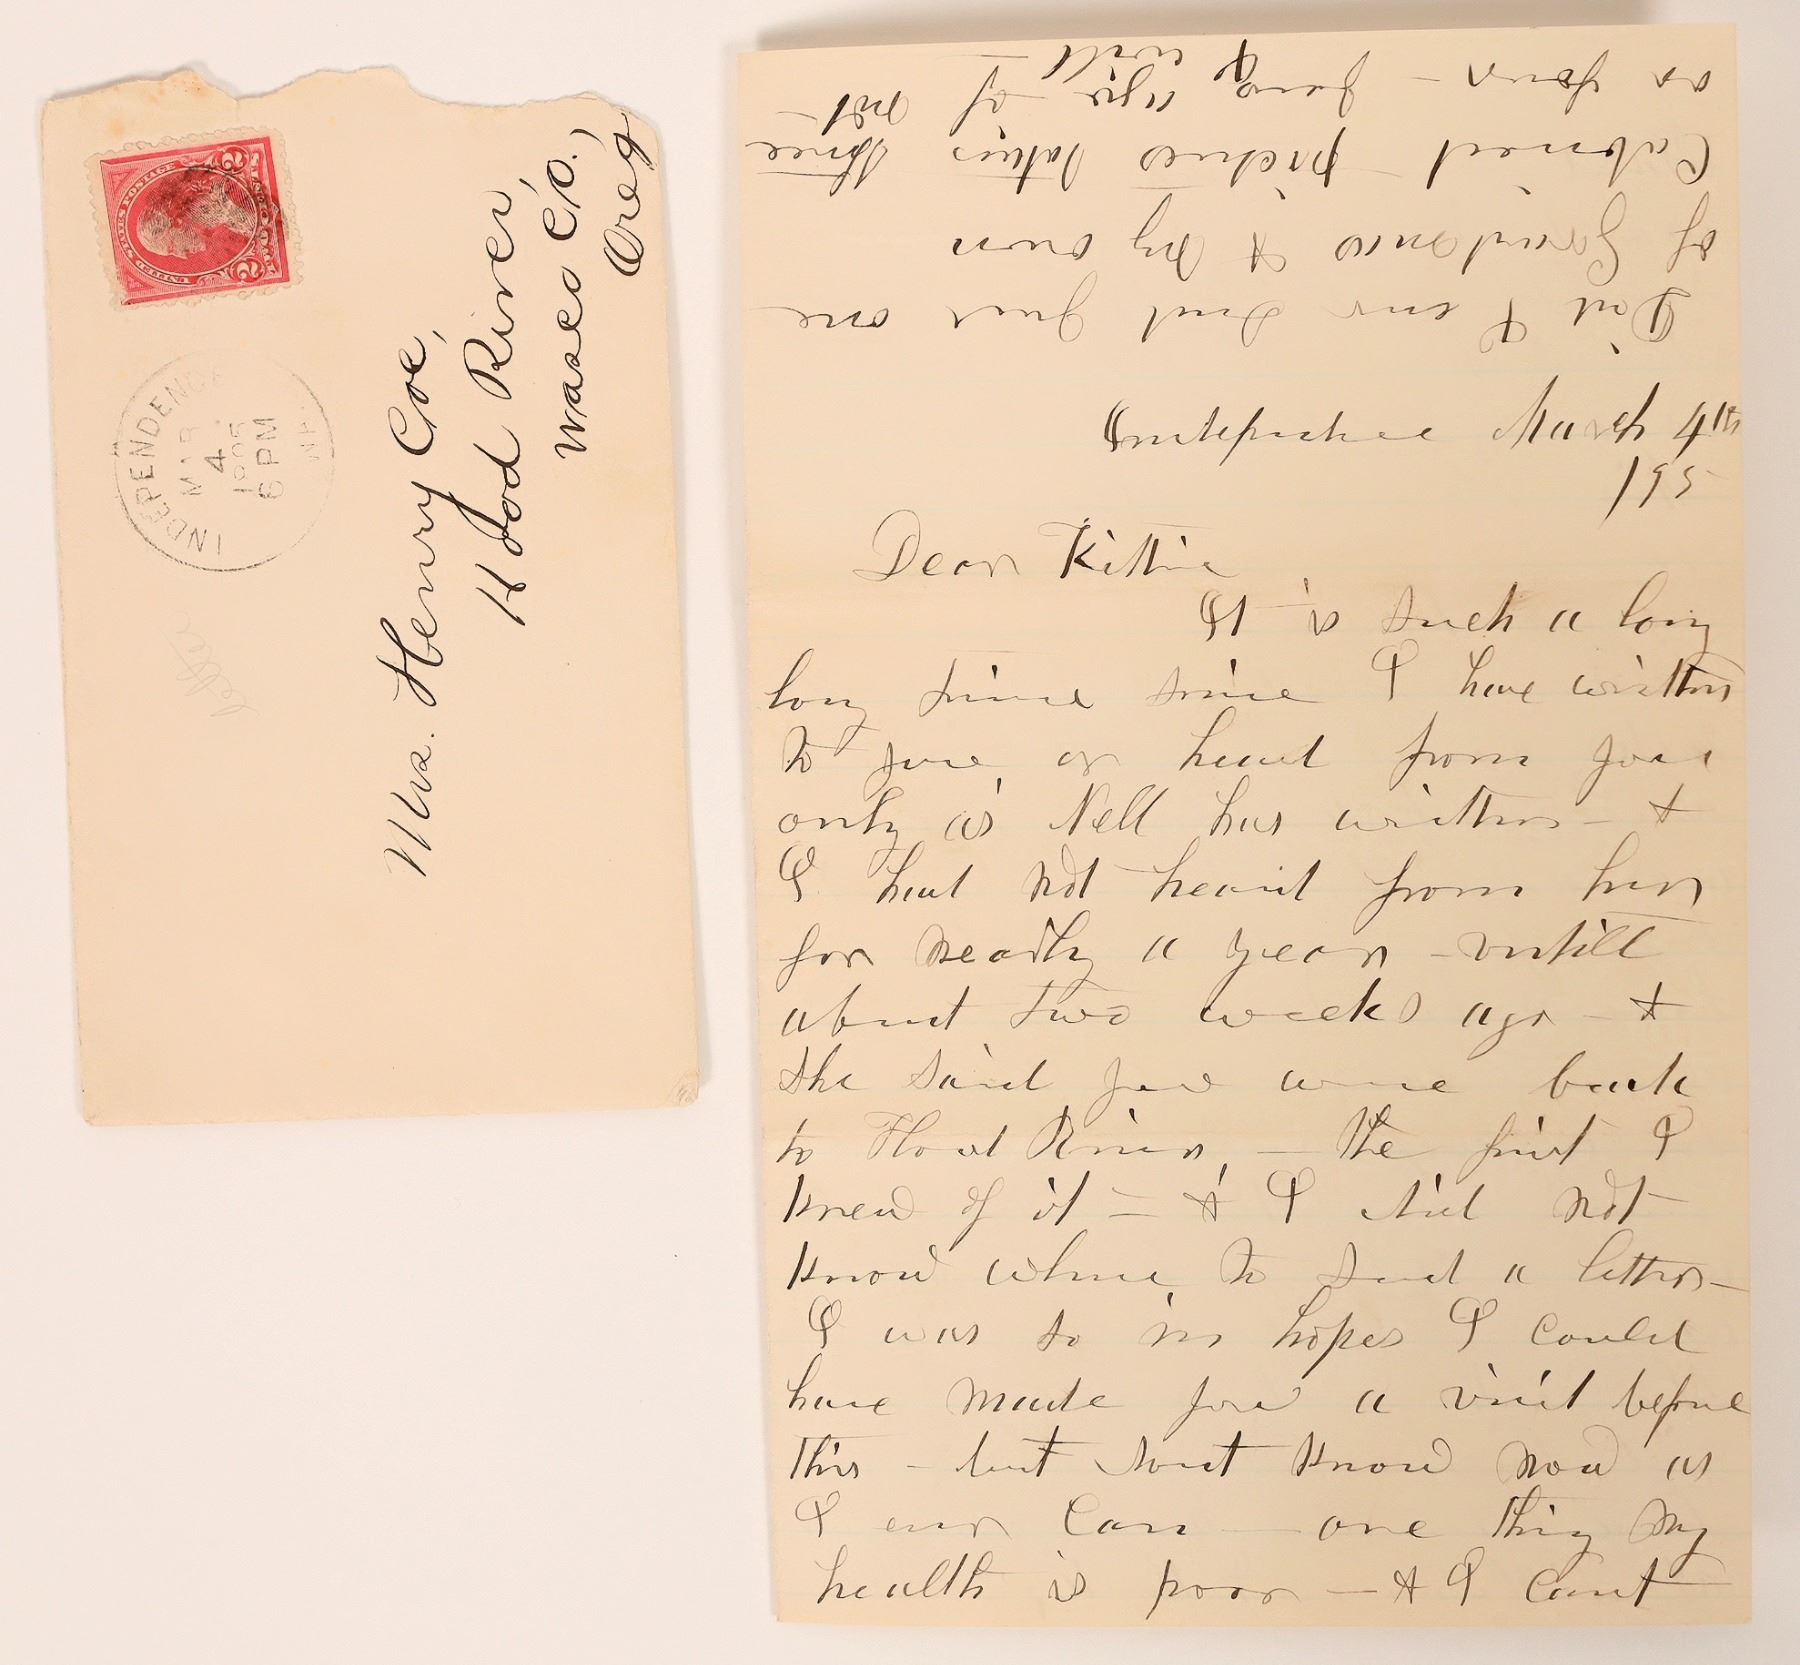 UNITED STATES POSTAGE
2 TWO CENTS 2
INDEPENDENCE
MAR
4
1895
6 PM
letter
Mrs. Henry Coe,
Hood River,
Wasco Co.,
Oreg
Did I ever send you one
of Grandmas & my own
Cabinet pictures taken three
or four years ago - if not
I will
Independence March 4th
195
Dear Kittie
It is such a long
long time since I have written
to you or heard from you
only as Nell has written - &
I had not heard from her
for nearly a year - untill
about two weeks ago - &
she said you were back
to Hood River, - the first I
knew of it - & I did not
know where to send a letter -
I was so in hopes I could
have made you a visit before
this - but dont know now as
I ever can - one thing my
health is poor - & I cant